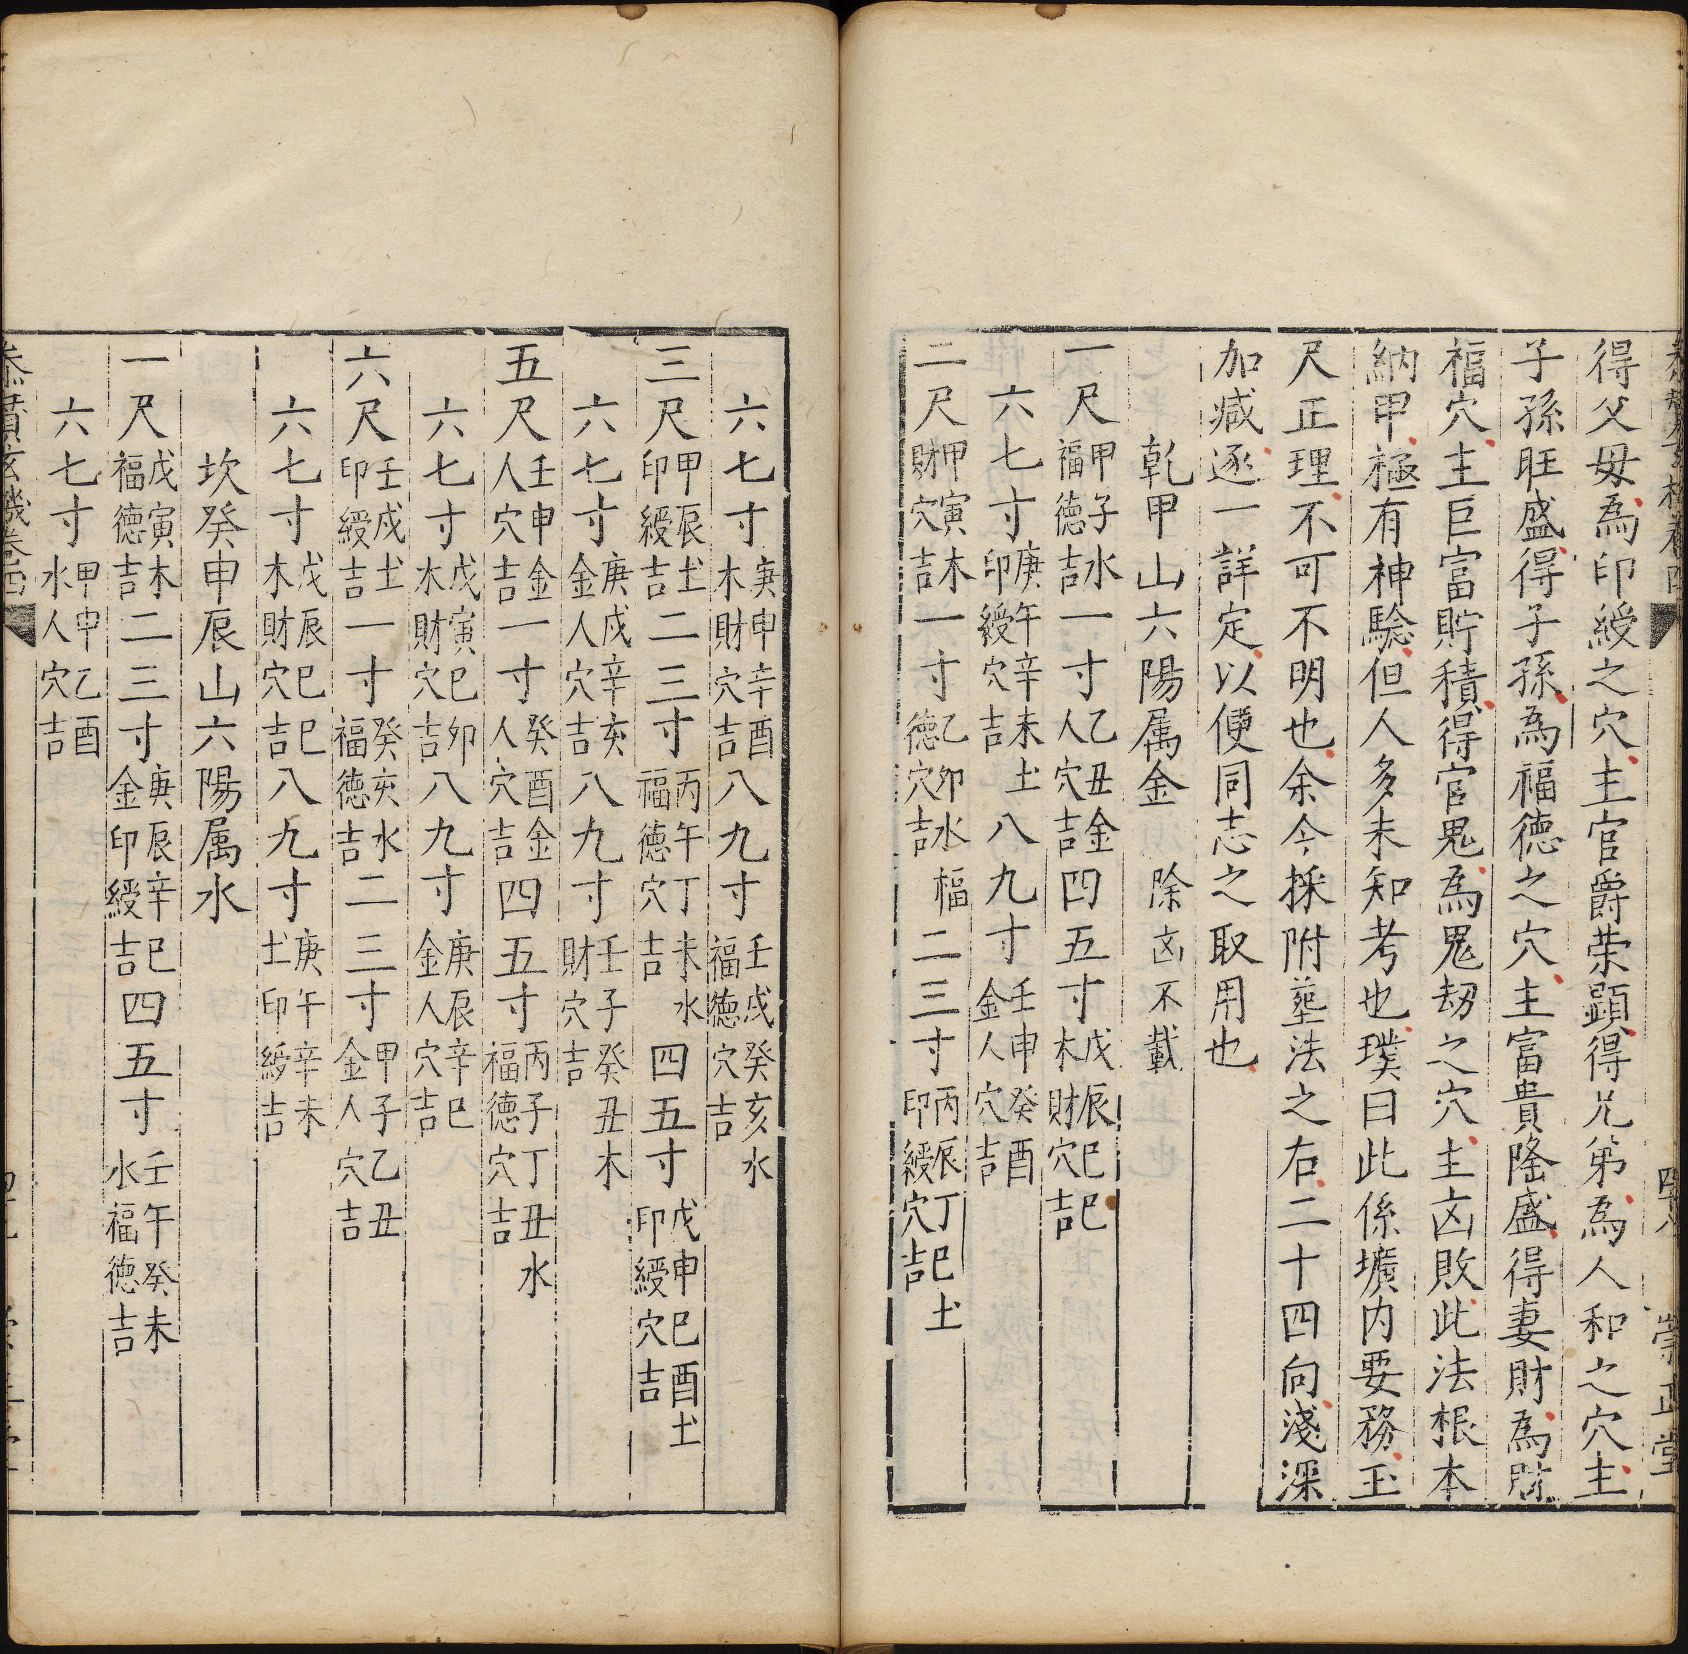 得父母為印綬之穴主官爵荣顕得兄弟為人和之穴主
子孫旺盛得子孫為福德之穴主富貴隆盛得妻財為財
福穴主巨富貯積得官鬼為鬼刼之穴主凶敗此法根本
納甲極有神驗但人多未知考也璞曰此係壙内要務玉
尺正理不可不明也余今採附塟法之右二十四向淺深
加减逐一詳定以便同志之取用也
乾甲山六陽属金 除凶不載
一尺甲子水福德吉一寸乙丑金人穴吉四五寸戊辰己巳木財穴吉
六七寸庚午辛未土印綬穴吉八九寸壬申癸酉金人穴吉
二尺甲寅木財穴吉一寸乙卯水福德穴吉二三寸丙辰丁巳土印綬穴吉
六七寸庚申辛酉木財穴吉八九寸壬戌癸亥水福德穴吉
三尺甲辰土印綬吉二三寸丙午丁未水福德穴吉四五寸戊申己酉土印綬穴吉
六七寸庚戌辛亥金人穴吉八九寸壬子癸丑木財穴吉
五尺壬申金人穴吉一寸癸酉金人穴吉四五寸丙子丁丑水福德穴吉
六七寸戊寅己卯木財穴吉八九寸庚辰辛巳金人穴吉
六尺壬戌土印綬吉一寸癸亥水福德吉二三寸甲子乙丑金人穴吉
六七寸戊辰己巳木財穴吉八九寸庚午辛未土印綬吉
坎癸申辰山六陽属水
一尺戊寅木福德吉二三寸庚辰辛巳金印綬吉四五寸壬午癸未水福德吉
六七寸甲申乙酉水人穴吉
四十八
崇正堂